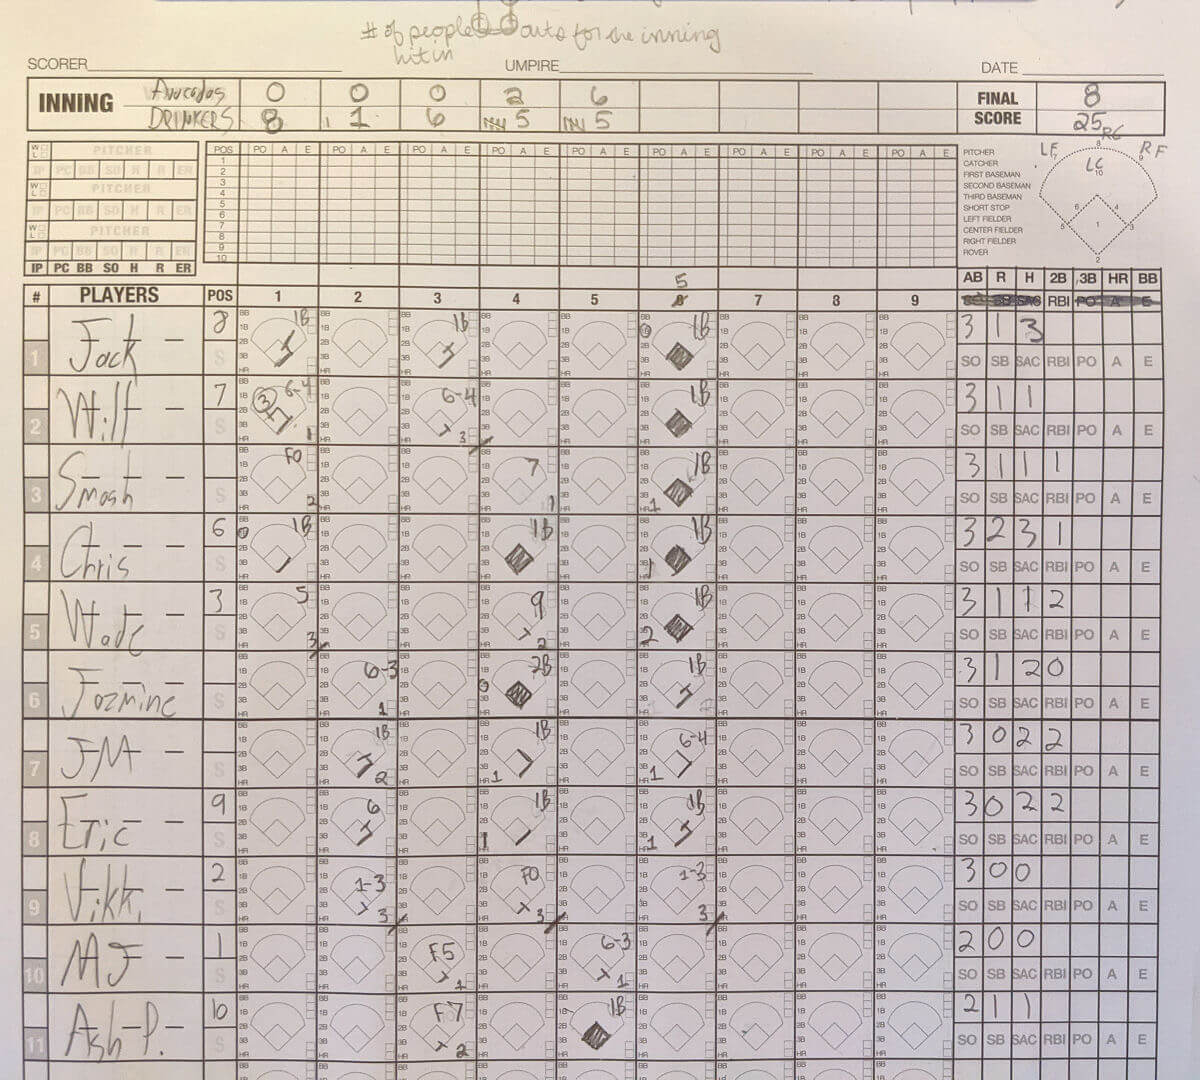 # of people outs for the inning
hit in
SCORER UMPIRE DATE
INNING 0 0 0 2 6 FINAL SCORE 8
DRINKERS 8 1 6 5 5 25
RC
LF RF
LC
PITCHER POS PO A E PO A E PO A E PO A E PO A E PO A E PO A E PO A E PO A E
IP PC BB SO H R ER
PITCHER
IP PC BB SO H R ER
PITCHER
IP PC BB SO H R ER
IP PC BB SO H R ER
1
2
3
4
5
6
7
8
9
10
PITCHER
CATCHER
FIRST BASEMAN
SECOND BASEMAN
THIRD BASEMAN
SHORT STOP
LEFT FIELDER
CENTER FIELDER
RIGHT FIELDER
ROVER
8
7 9
10
6 4
5 1 3
2
5
AB R H 2B 3B HR BB
# PLAYERS POS 1 2 3 4 5 6 7 8 9 RBI
1 Jack - 8 1B 1B 1B 3 1 3
SO SB SAC RBI PO A E
2 Will - 7 3 6-4 1 6-4 3 1B 3 1 1
SO SB SAC RBI PO A E
3 Smash - F0 2 7 1 1B 1 3 1 1 1
SO SB SAC RBI PO A E
4 Chris - 6 1B 1B 1B 1 3 2 3 1
SO SB SAC RBI PO A E
5 Wade - 3 5 3 9 2 1B 2 3 1 1 2
SO SB SAC RBI PO A E
6 Jozmine - 6-3 1 2B 1B 3 1 2 0
SO SB SAC RBI PO A E
7 JM - 1B 2 1B 1 6-4 1 3 0 2 2
SO SB SAC RBI PO A E
8 Eric - 9 6 1B 1 1B 1 3 0 2 2
SO SB SAC RBI PO A E
9 Vikki - 2 1-3 3 F0 3 1-3 3 3 0 0
SO SB SAC RBI PO A E
10 MJ - 1 F5 1 6-3 1 2 0 0
SO SB SAC RBI PO A E
11 Ash P. - 10 F7 2 1B 2 1 1
SO SB SAC RBI PO A E